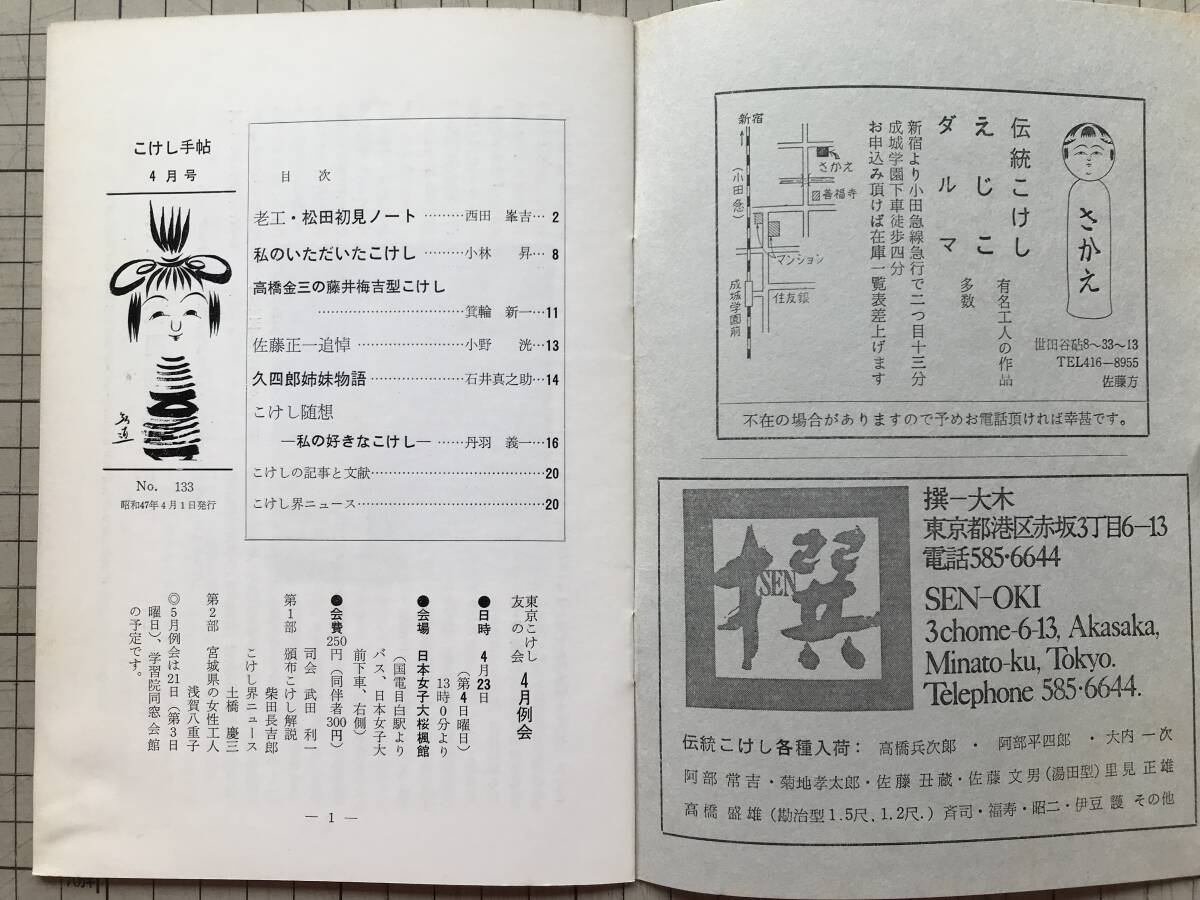 こけし手帖
4月号
No. 133
昭和47年4月1日発行
目次
老工・松田初見ノート………西田 峯吉…2
私のいただいたこけし………小林 昇…8
高橋金三の藤井梅吉型こけし
…………………………箕輪 新一…11
佐藤正一追悼…………………小野 洸…13
久四郎姉妹物語………………石井真之助…14
こけし随想
―私の好きなこけし―……丹羽 義一…16
こけしの記事と文献……………………………20
こけし界ニュース………………………………20
東京こけし友の会 4月例会
●日時 4月23日
(第4日曜日)
13時0分より
●会場 日本女子大桜楓館
(国電目白駅より
バス、日本女子大
前下車、右側)
●会費 250円(同伴者300円)
司会 武田 利一
第1部 頒布こけし解説
柴田長吉郎
こけし界ニュース
土橋 慶三
第2部 宮城県の女性工人
浅賀八重子
◎5月例会は21日(第3日
曜日)、学習院同窓会館
の予定です。
― 1 ―
さかえ
伝統こけし
えじこ
ダルマ
有名工人の作品
多数
新宿より小田急線急行で二つ目十三分
成城学園下車徒歩四分
お申込み頂けば在庫一覧表差上げます
新宿
(小田急)
成城学園前
さかえ
善福寺
マンション
住友銀
世田谷砧8〜33〜13
TEL416―8955
佐藤方
不在の場合がありますので予めお電話頂ければ幸甚です。
撰
SEN
撰―大木
東京都港区赤坂3丁目6―13
電話585・6644
SEN-OKI
3chome-6-13, Akasaka,
Minato-ku, Tokyo.
Telephone 585・6644.
伝統こけし各種入荷: 高橋兵次郎・阿部平四郎・大内一次
阿部常吉・菊地孝太郎・佐藤丑蔵・佐藤文男(湯田型)里見正雄
高橋盛雄(勘治型1.5尺、1.2尺.)斉司・福寿・昭二・伊豆護 その他